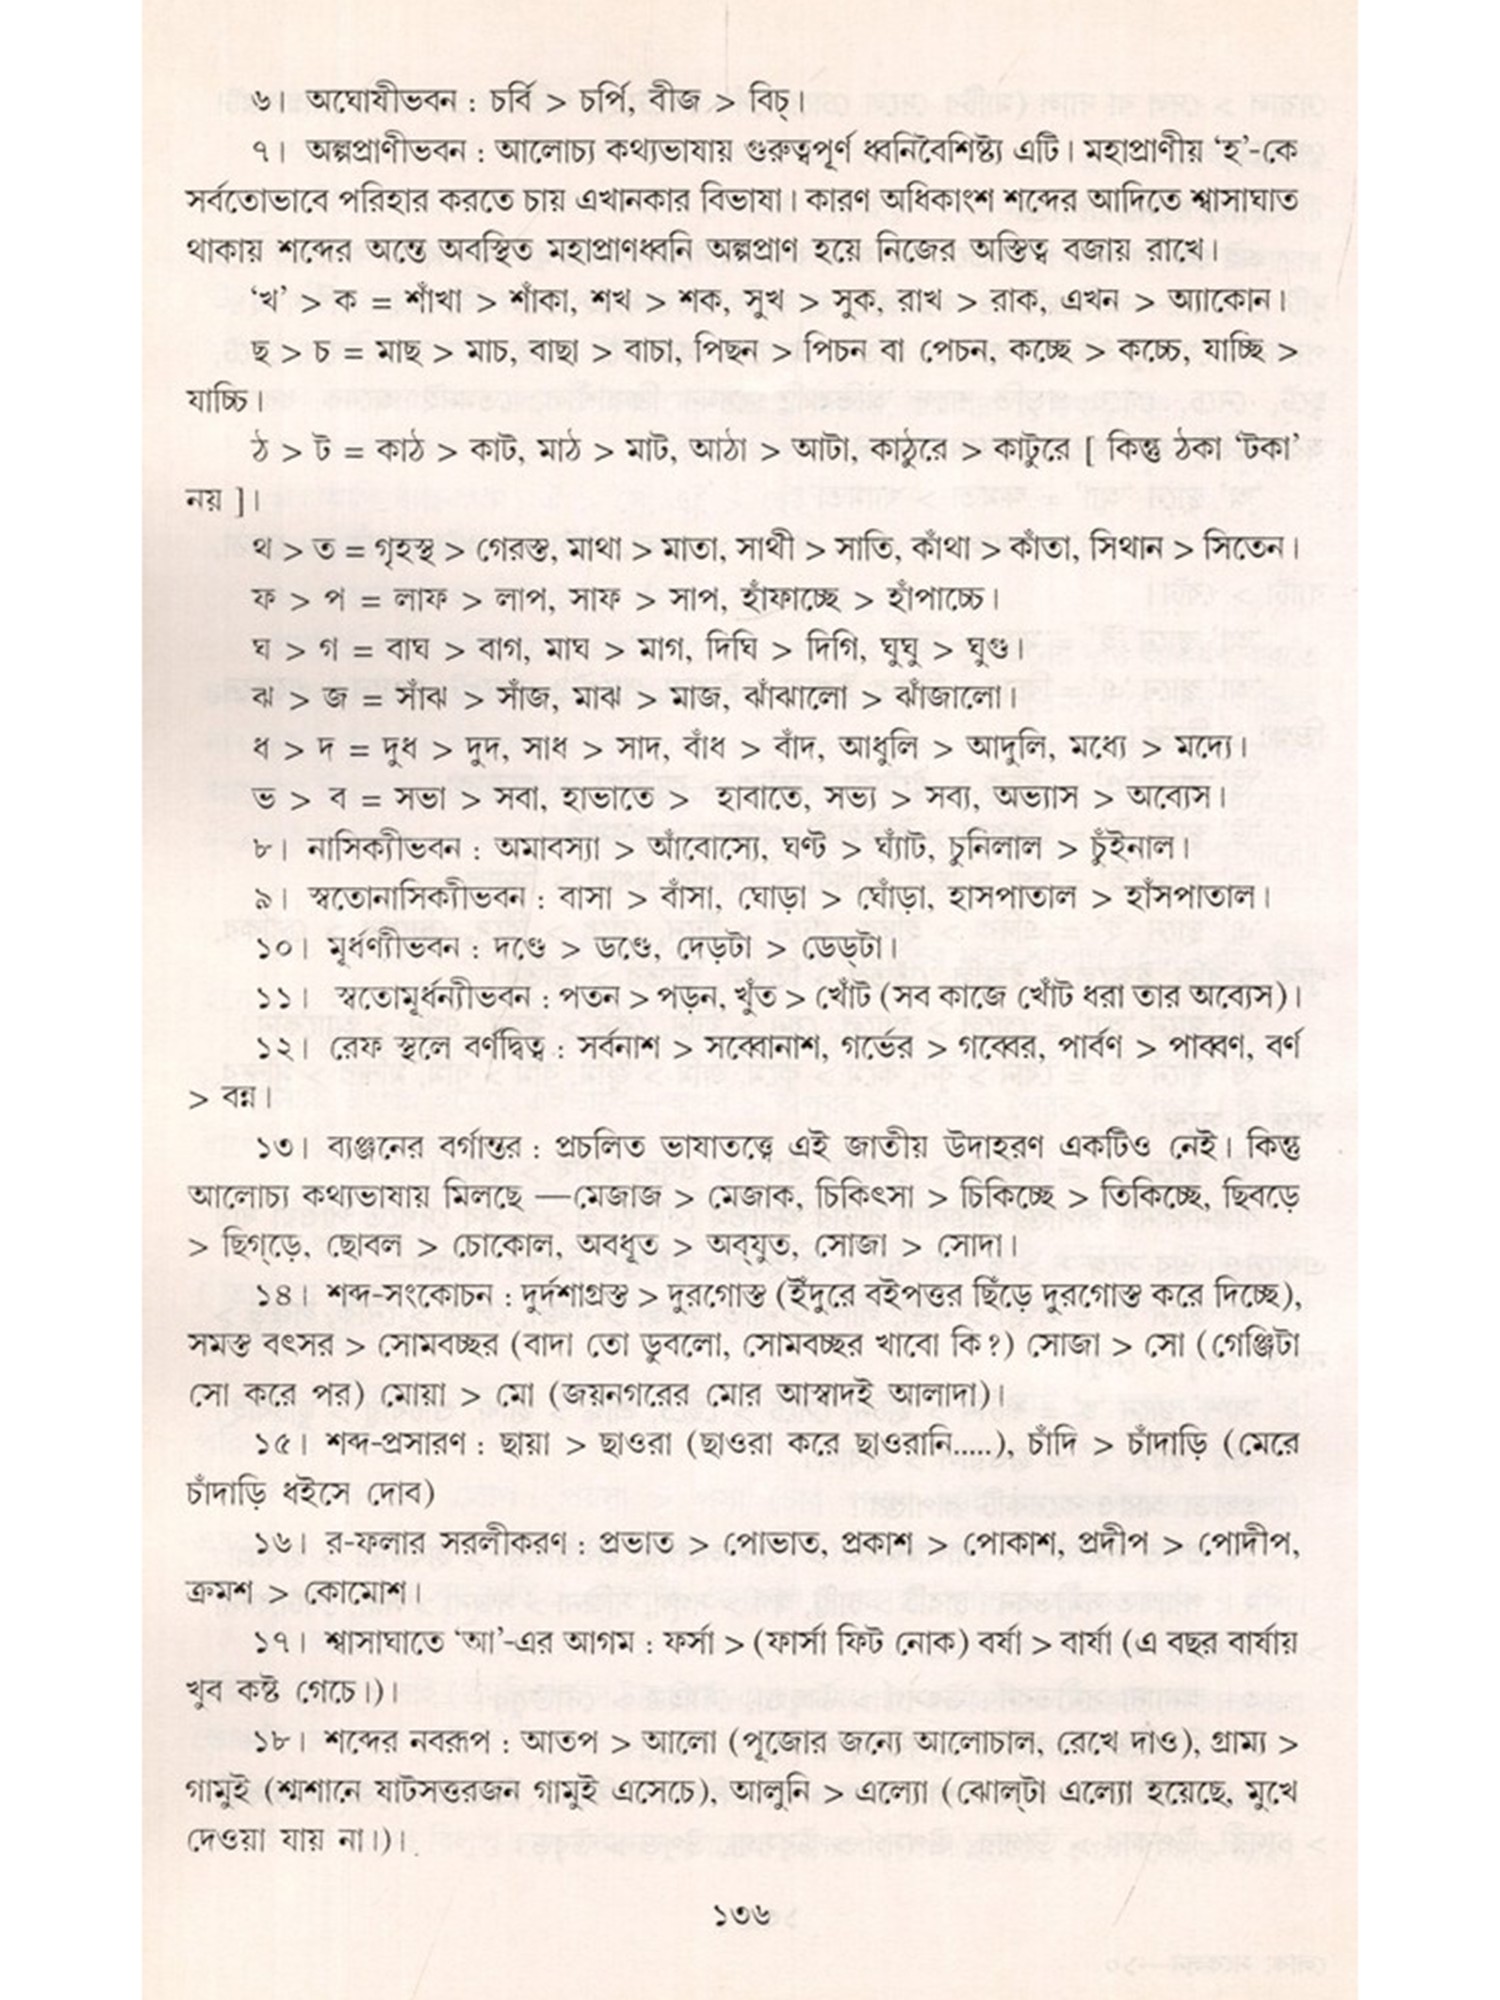 ৬। অঘোষীভবন : চর্বি > চর্পি, বীজ > বিচ্।
৭। অল্পপ্রাণীভবন : আলোচ্য কথ্যভাষায় গুরুত্বপূর্ণ ধ্বনিবৈশিষ্ট্য এটি। মহাপ্রাণীয় ‘হ’-কে
সর্বতোভাবে পরিহার করতে চায় এখানকার বিভাষা। কারণ অধিকাংশ শব্দের আদিতে শ্বাসাঘাত
থাকায় শব্দের অন্তে অবস্থিত মহাপ্রাণধ্বনি অল্পপ্রাণ হয়ে নিজের অস্তিত্ব বজায় রাখে।
‘খ’ > ক = শাঁখা > শাঁকা, শখ > শক, সুখ > সুক, রাখ > রাক, এখন > অ্যাকোন।
ছ > চ = মাছ > মাচ, বাছা > বাচা, পিছন > পিচন বা পেচন, কচ্ছে > কচ্চে, যাচ্ছি >
যাচ্চি।
ঠ > ট = কাঠ > কাট, মাঠ > মাট, আঠা > আটা, কাঠুরে > কাটুরে [ কিন্তু ঠকা ‘টকা’
নয় ]।
থ > ত = গৃহস্থ > গেরস্ত, মাথা > মাতা, সাথী > সাতি, কাঁথা > কাঁতা, সিথান > সিতেন।
ফ > প = লাফ > লাপ, সাফ > সাপ, হাঁফাচ্ছে > হাঁপাচ্চে।
ঘ > গ = বাঘ > বাগ, মাঘ > মাগ, দিঘি > দিগি, ঘুঘু > ঘুগু।
ঝ > জ = সাঁঝ > সাঁজ, মাঝ > মাজ, ঝাঁঝালো > ঝাঁজালো।
ধ > দ = দুধ > দুদ, সাধ > সাদ, বাঁধ > বাঁদ, আধুলি > আদুলি, মধ্যে > মদ্যে।
ভ > ব = সভা > সবা, হাভাতে > হাবাতে, সভ্য > সব্য, অভ্যাস > অব্যেস।
৮। নাসিক্যীভবন : অমাবস্যা > আঁবোস্যে, ঘণ্ট > ঘ্যাঁট, চুনিলাল > চুঁইনাল।
৯। স্বতোনাসিক্যীভবন : বাসা > বাঁসা, ঘোড়া > ঘোঁড়া, হাসপাতাল > হাঁসপাতাল।
১০। মূর্ধণ্যীভবন : দণ্ডে > ডণ্ডে, দেড়টা > ডেড্‌টা।
১১। স্বতোমূর্ধন্যীভবন : পতন > পড়ন, খুঁত > খোঁট (সব কাজে খোঁট ধরা তার অব্যেস)।
১২। রেফ স্থলে বর্ণদ্বিত্ব : সর্বনাশ > সব্বোনাশ, গর্ভের > গব্বের, পার্বণ > পাব্বণ, বর্ণ
> বন্ন।
১৩। ব্যঞ্জনের বর্গান্তর : প্রচলিত ভাষাতত্ত্বে এই জাতীয় উদাহরণ একটিও নেই। কিন্তু
আলোচ্য কথ্যভাষায় মিলছে —মেজাজ > মেজাক, চিকিৎসা > চিকিচ্ছে > তিকিচ্ছে, ছিবড়ে
> ছিগ্‌ড়ে, ছোবল > চোকোল, অবধূত > অব্‌যুত, সোজা > সোদা।
১৪। শব্দ-সংকোচন : দুর্দশাগ্রস্ত > দুরগোস্ত (ইঁদুরে বইপত্তর ছিঁড়ে দুরগোস্ত করে দিচ্ছে),
সমস্ত বৎসর > সোমবচ্ছর (বাদা তো ডুবলো, সোমবচ্ছর খাবো কি?) সোজা > সো (গেঞ্জিটা
সো করে পর) মোয়া > মো (জয়নগরের মোর আস্বাদই আলাদা)।
১৫। শব্দ-প্রসারণ : ছায়া > ছাওরা (ছাওরা করে ছাওরানি.....), চাঁদি > চাঁদাড়ি (মেরে
চাঁদাড়ি ধইসে দোব)
১৬। র-ফলার সরলীকরণ : প্রভাত > পোভাত, প্রকাশ > পোকাশ, প্রদীপ > পোদীপ,
ক্রমশ > কোমোশ।
১৭। শ্বাসাঘাতে ‘আ’-এর আগম : ফর্সা > (ফার্সা ফিট নোক) বর্ষা > বার্ষা (এ বছর বার্ষায়
খুব কষ্ট গেচে।)।
১৮। শব্দের নবরূপ : আতপ > আলো (পূজোর জন্যে আলোচাল, রেখে দাও), গ্রাম্য >
গামুই (শ্মশানে ষাটসত্তরজন গামুই এসেচে), আলুনি > এল্যো (ঝোল্‌টা এল্যো হয়েছে, মুখে
দেওয়া যায় না।)।
১৩৬